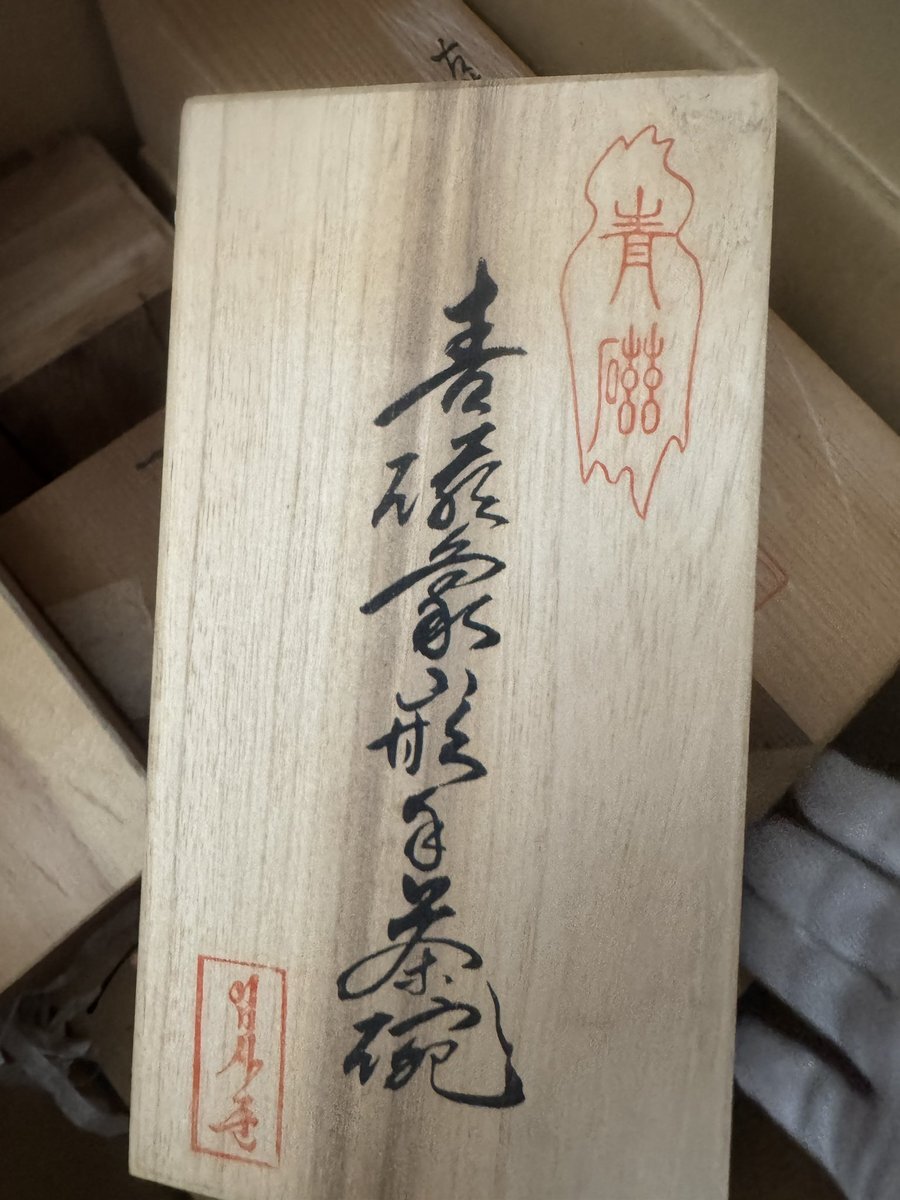 青磁
青磁象嵌手茶碗